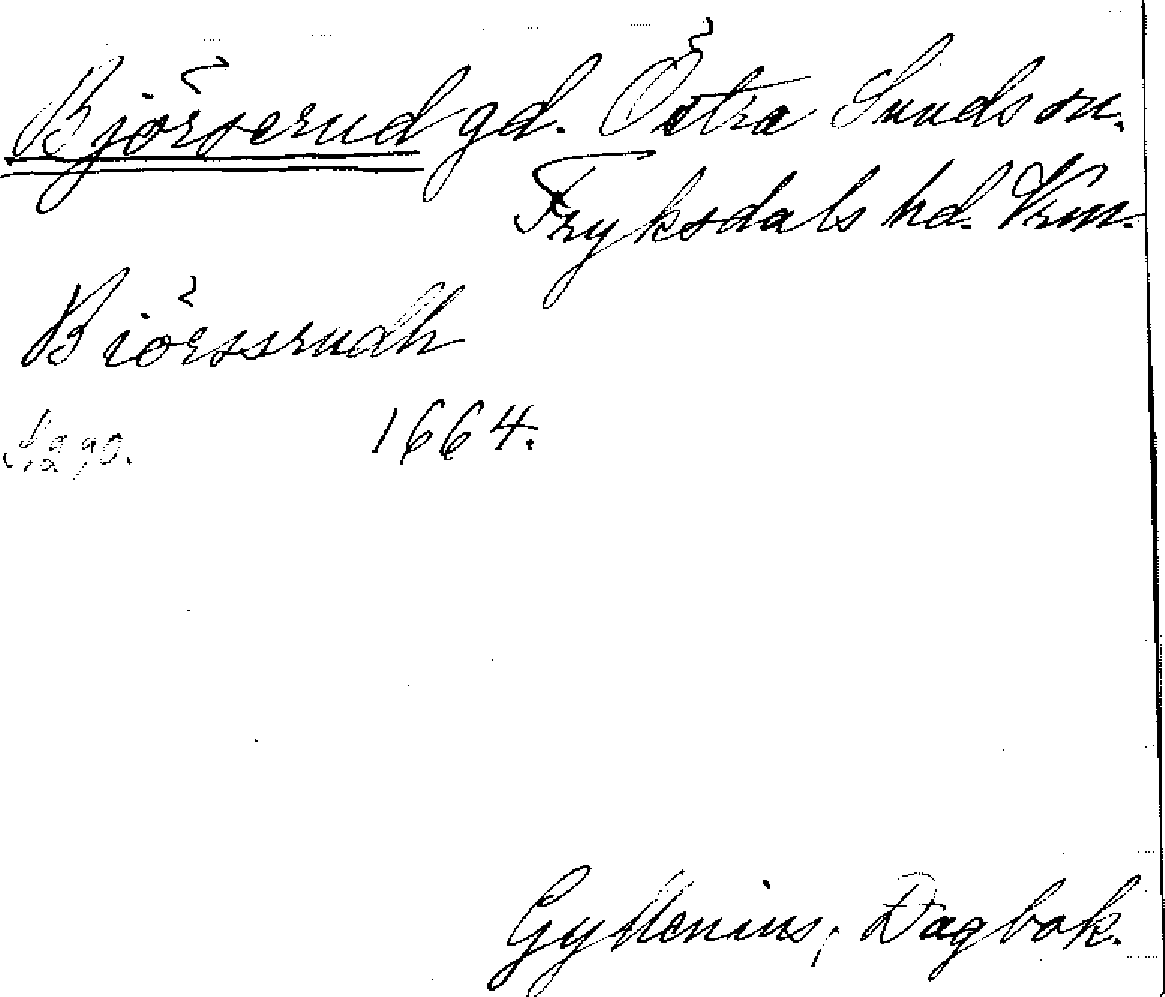 Björserud gd. Östra Sunds sn.
Fryksdals hd. Vrm.
Biörssrudh
S. 290. 1664.
Gyllenius, Dagbok.